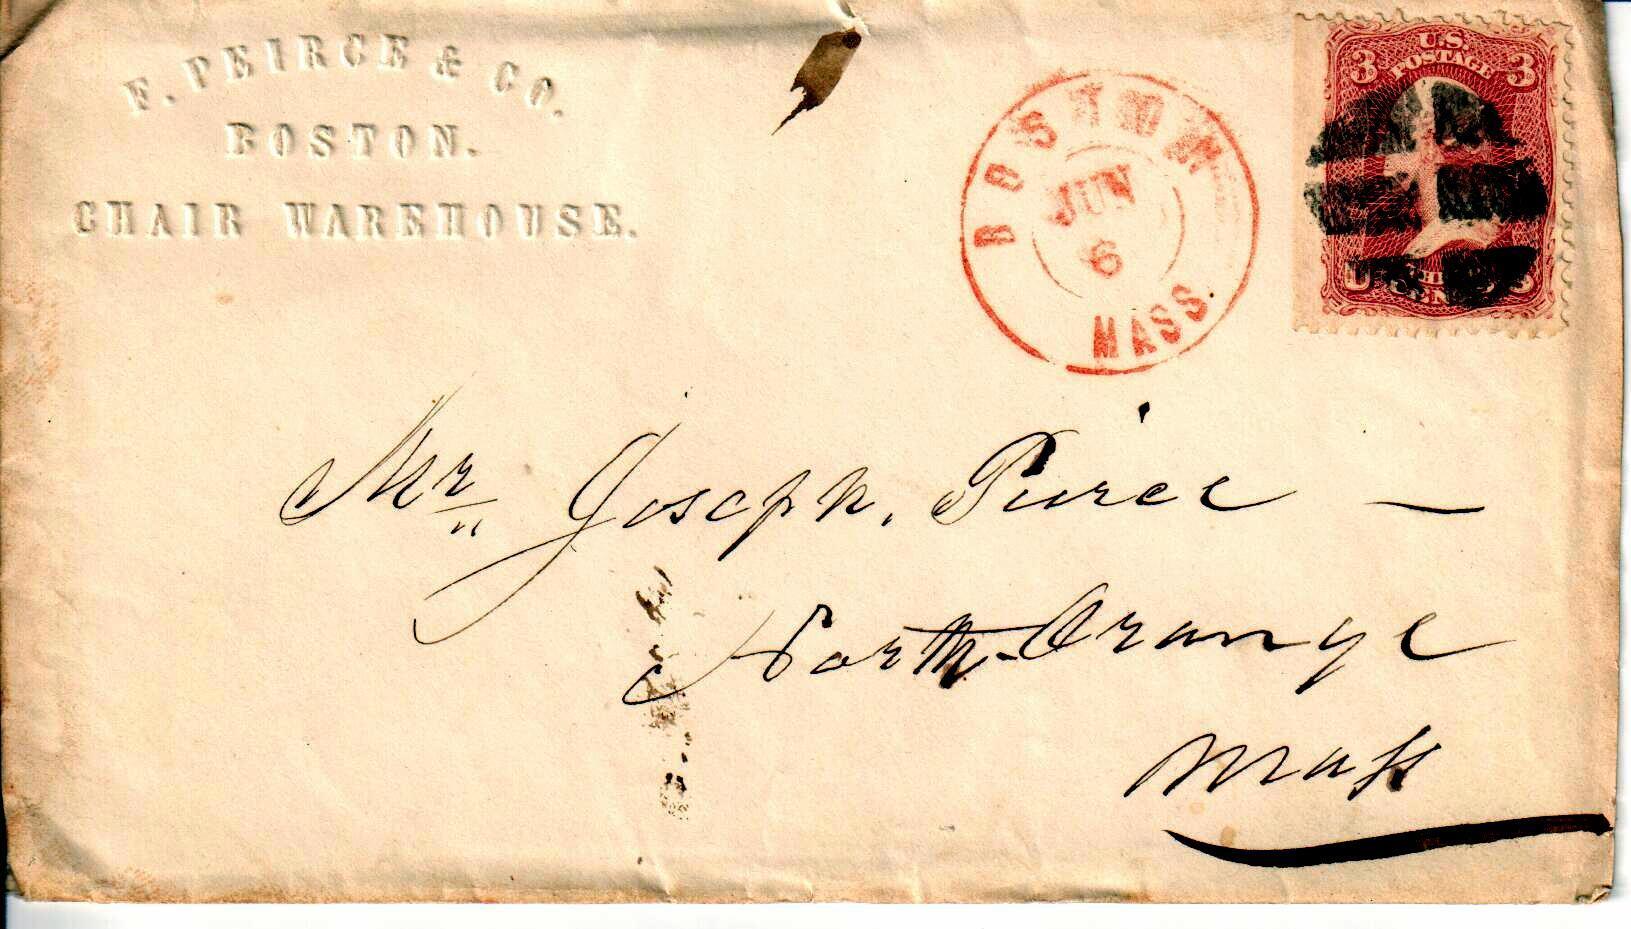 F. PEIRCE & CO.
BOSTON.
CHAIR WAREHOUSE.
BOSTON
JUN
6
MASS.
3 U.S. 3
POSTAGE
Mr. Joseph. Peirce —
North Orange
Mass